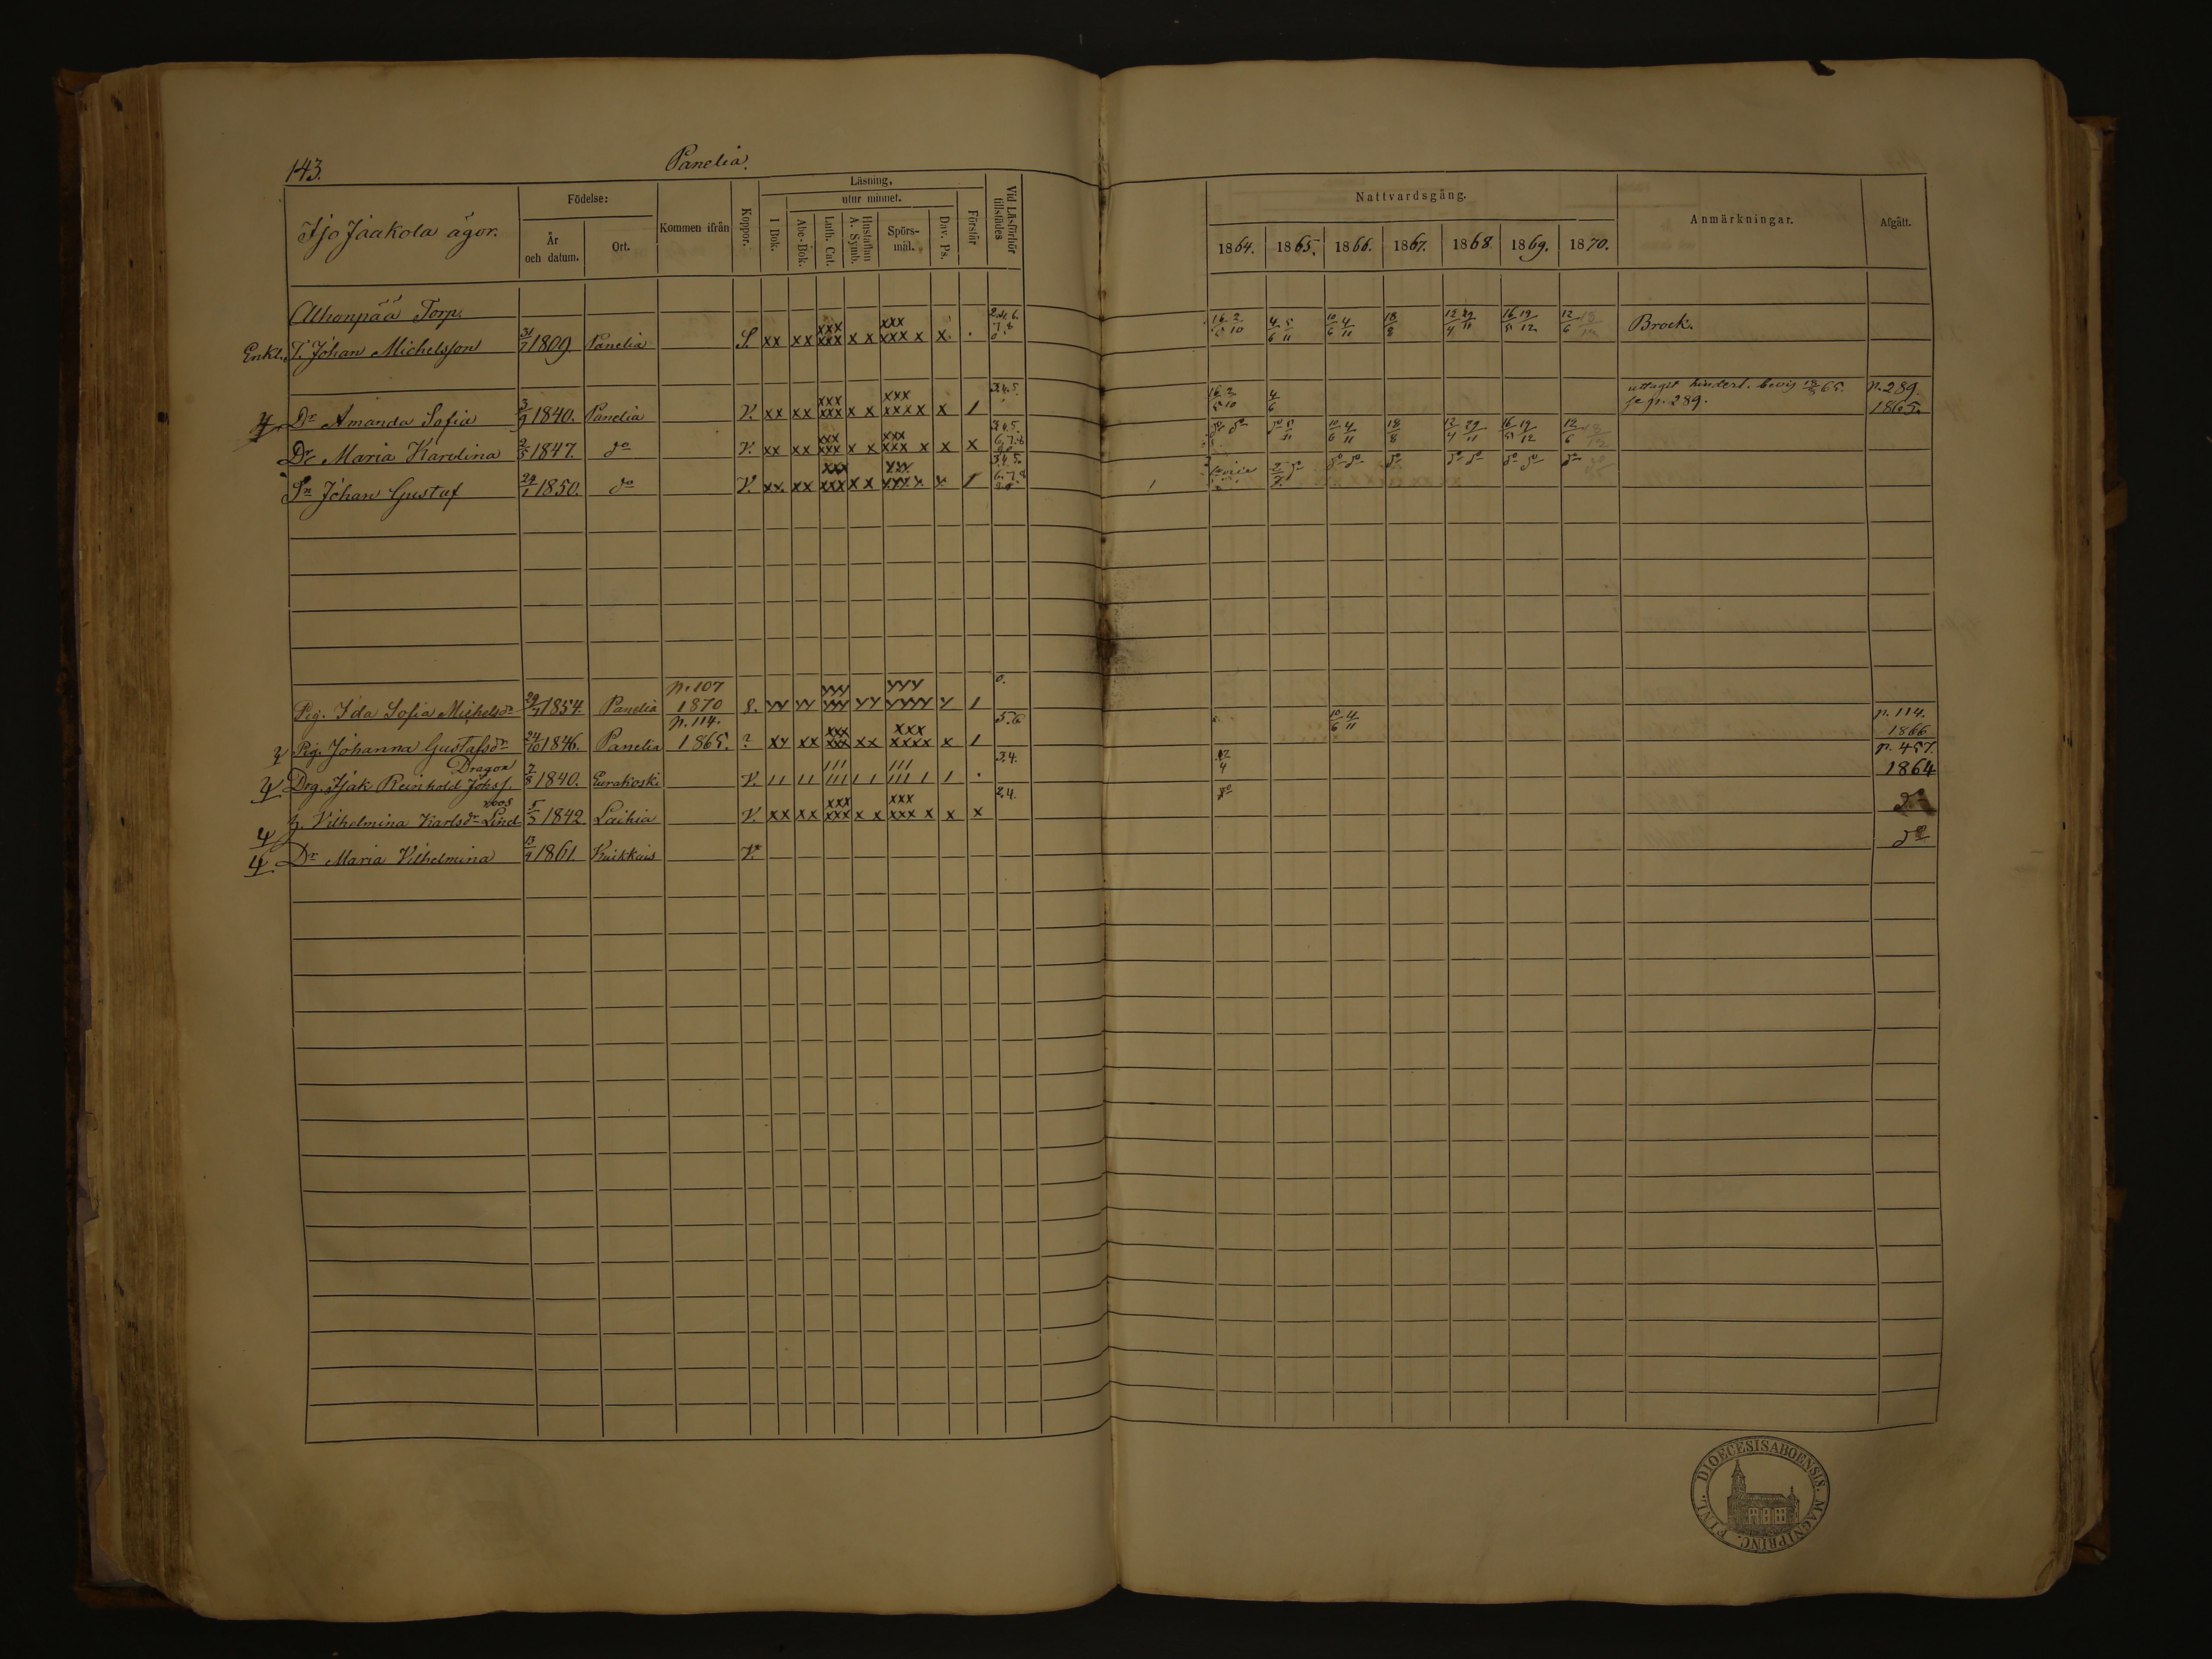 143.
Panelia.
Isjo Jaakola ägor.
Födelse:
År och datum.
Ort.
Kommen ifrån
Koppor.
Läsning,
utur minnet.
I Bok.
Abc-Bok.
Luth. Cat.
Hustaflan A. Symb.
Spörs-mål.
Dav. Ps.
Förstår
Vid Läsförhör tillstädes
Nattvardsgång.
1864. 1865. 1866. 1867. 1868 1869. 1870.
Anmärkningar.
Afgått.
Torp.
Enkl. T. Johan Michelsson 31/7 1809. Panelia S. xx xx xxx xxx x x xxx xxx x x 2.4.6. 7.8 0 2/10 4/6 5/11 10/6 4/11 18/8 12/4 29/11 16/5 19/12 12/6 18/12 Brock.
Dr Amanda Sofia 3/9 1840. Panelia V. xx xx xxx xxx x x xxx xxxx x 1 3.4.5. 2/10 4/6 uttagit hinderl. bevis 65. se p. 289. p. 289. 1865.
Dr Maria Karolina 2/5 1847. do V. xx xx xxx xxx x x xxx xxx x x x 3.4.5. 6.7.8 do do do 5/11 10/6 4/11 18/8 12/4 29/11 16/5 19/12 12/6 18/12
Sn Johan Gustaf 29/1 1850. do V. xx. xx xxx xxx x x xxx xxx x x 1 3.4.5. 6.7.8 do do do do do do do do do do
Pig. Ida Sofia Michelsdr 29/7 1854 Panelia p. 107 1870 8. xx xx xxx xxx xx xxx xxxx x 1 0.
Pig. Johanna Gustafsdr 24/10 1846. Panelia p. 114. 1865. ? xx xx xxx xxx xx xxx xxxx x 1 5.6 10/6 4/11 p. 114. 1866
Dragon
Drg. Isak Reinhold Johss. 7/8 1840. Eurakoski V. 11 11 111 111 1 1 111 111 1 1 3.4. 17/4 p. 457. 1864
roos
h. Vilhelmina Karlsdr Lind- 5/5 1842 Laihia V. xx xx xxx xxx x x xxx xxx x x x 2.4. do do
Dr Maria Vilhelmina 13/4 1861. Kuikkais V. do
DIOECESIS ABOENSIS. MAGNI PRINC. FINL.